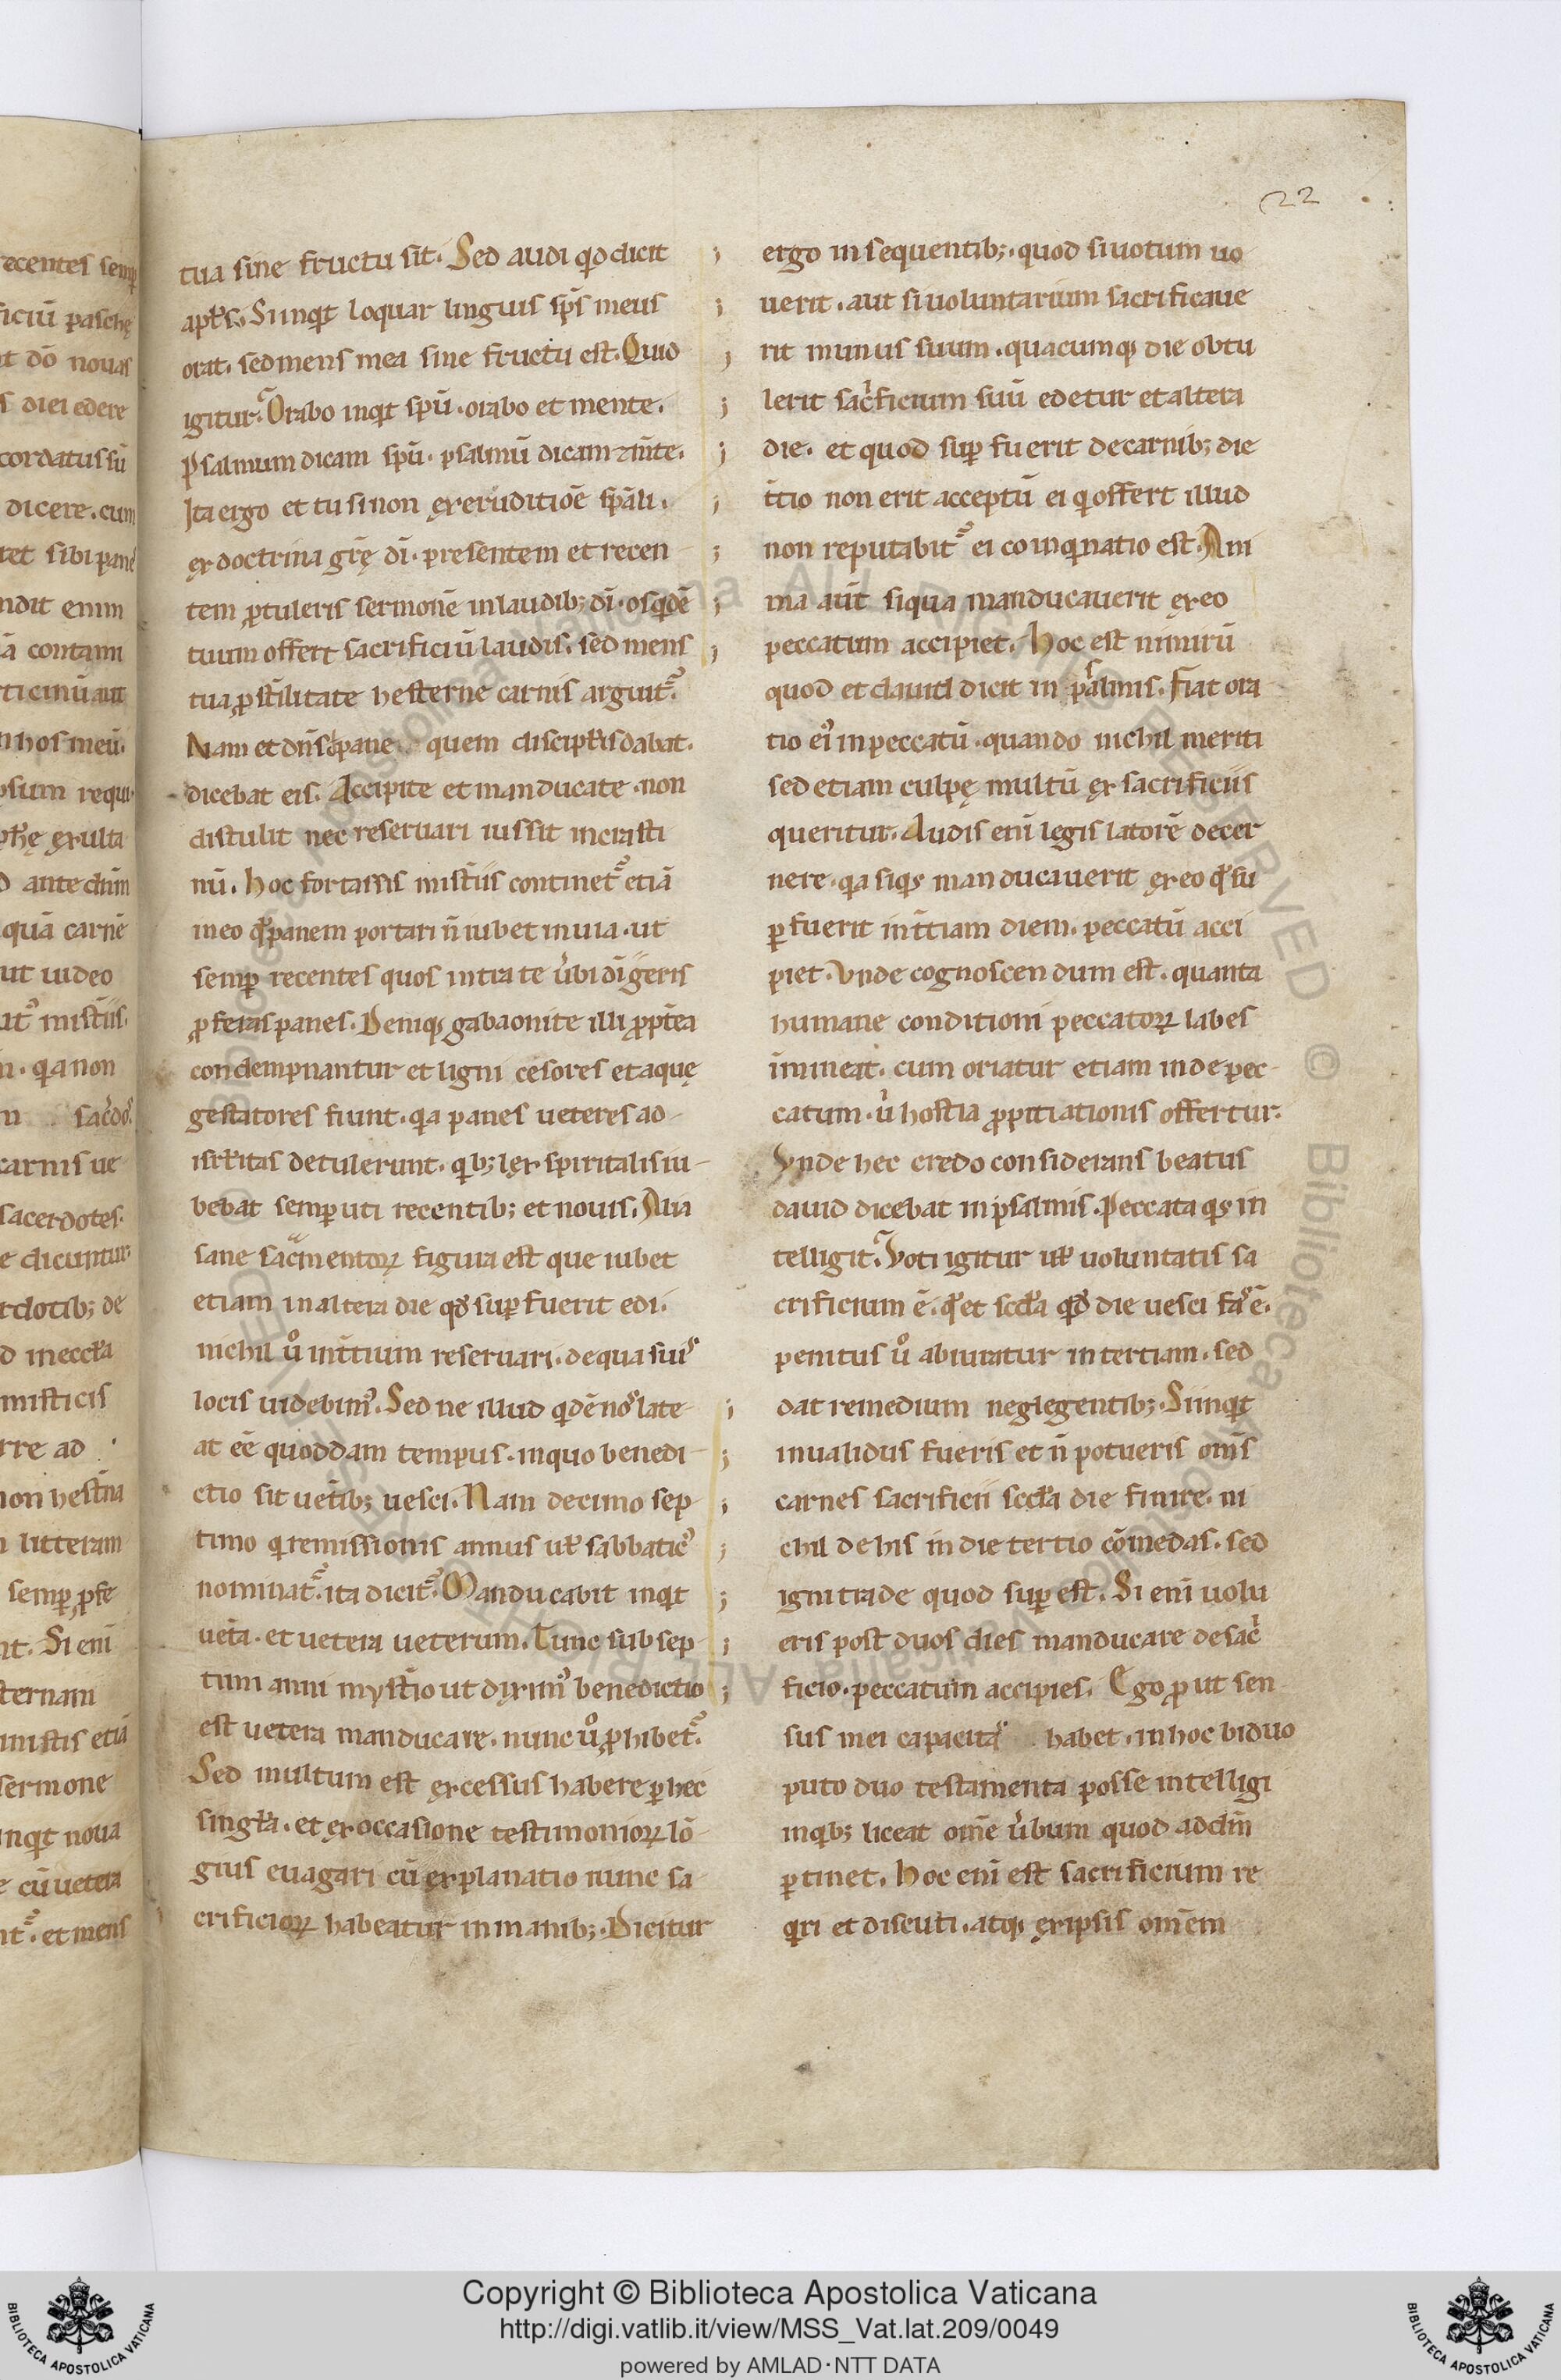 22
tua sine fructu sit. Sed audi qd dicit
apłs. Si inqt loquar linguis sps̄ meus
orat. sed mens mea sine fructu est. Quid
igitur? Orabo inqt spū. orabo et mente.
psalmum dicam spū. psalmū dicam ⁊ m̄te.
Ita ergo et tu si non ex eruditiōe sp̄ali.
ex doctrina grę dī. presentem et recen
tem ꝓtuleris sermonē in laudib; dī. os qdē
tuum offert sacrificiū laudis. sed mens
tua ꝓ st̄ilitate hesterne carnis arguit᷑.
Nam et dn̄s pane quem discipłis dabat.
dicebat eis. Accipite et manducate. non
distulit nec reseruari iussit in crasti
nū. hoc fortassis mist̄iis continet᷑ etiā
in eo qd panem portari n̄ iubet in uia. ut
semꝑ recentes quos intra te ūbi dī geris
ꝓferas panes. Deniqꝫ gabaonite illi ꝓpt̄ea
condempnantur et ligni cesores et aquę
gestatores fiunt. qa panes ueteres ad
isrłitas detulerunt. qb; lex spiritalis iu
bebat semꝑ uti recentib; et nouis. Alia
sane sacm̄entoꝝ figura est que iubet
etiam in altera die qd suꝑ fuerit edi.
nichil ū in t̄tium reseruari. de qua suis
locis uidebimꝰ. Sed ne illud qdē nos late
at eē quoddam tempus. in quo benedi
ctio sit uet̄ib; uesci. Nam decimo sep
timo q remissionis annus uł sabbaticꝰ
nominat᷑. ita dicit᷑. Manducabit inqt
uet̄a. et uetera ueterum. Tunc sub sep
timi anni myst̄io ut diximꝰ benedictio
est uetera manducare. nunc ū ꝓhibet᷑.
Sed multum est excessus habere ꝑ hec
singła. et ex occasione testimonioꝝ lō
gius euagari cū explanatio nunc sa
crificioꝝ habeatur in manib;. Dicitur
ergo in sequentib;. quod si uotum uo
uerit. aut si uoluntarium sacrificaue
rit munus suum. quacumqꝫ die obtu
lerit sac̄ficium suū edetur et altera
die. et quod suꝑ fuerit de carnib; die
t̄tio non erit acceptū ei q offert illud
non reputabit᷑ ei coinqnatio est. Ani
ma aūt siqua manducauerit ex eo
peccatum accipiet. hoc est nimirū
quod et dauid dicit in psalmis. Fiat ora
tio eiꝰ in peccatū. quando nichil meriti
sed etiam culpę multū ex sacrificiis
queritur. Audis enī legis latorē decer
nere. qa siqs manducauerit ex eo qd su
ꝑ fuerit in t̄tiam diem. peccatū acci
piet. Vnde cognoscendum est. quanta
humane conditioni peccatoꝝ labes
īmineat. cum oriatur etiam inde pec
catum. ū hostia ꝓpitiationis offertur.
Vnde hec credo considerans beatus
dauid dicebat in psalmis. Peccata qs in
telligit? Voti igitur uł uoluntatis sa
crificium ē. qd et scd̄a qd die uesci fas ē.
penitus ū abiuratur in tertiam. sed
dat remedium neglegentib;. Si inqt
inualidus fueris et n̄ potueris om̄s
carnes sacrificii scd̄a die finire. ni
chil de his in die tertio cōmedas. sed
igni trade quod suꝑ est. Si enī uolu
eris post duos dies manducare de sac̄
ficio. peccatum accipies. Ego ꝓ ut sen
sus mei capacitas habet. in hoc biduo
puto duo testamenta posse intelligi
in qb; liceat om̄e ūbum quod ad dm̄
ꝑtinet. hoc enī est sacrificium re
qri et discuti. atqꝫ ex ipsis om̄em
Copyright © Biblioteca Apostolica Vaticana
http://digi.vatlib.it/view/MSS_Vat.lat.209/0049
powered by AMLAD·NTT DATA
BIBLIOTECA APOSTOLICA VATICANA
BIBLIOTECA APOSTOLICA VATICANA